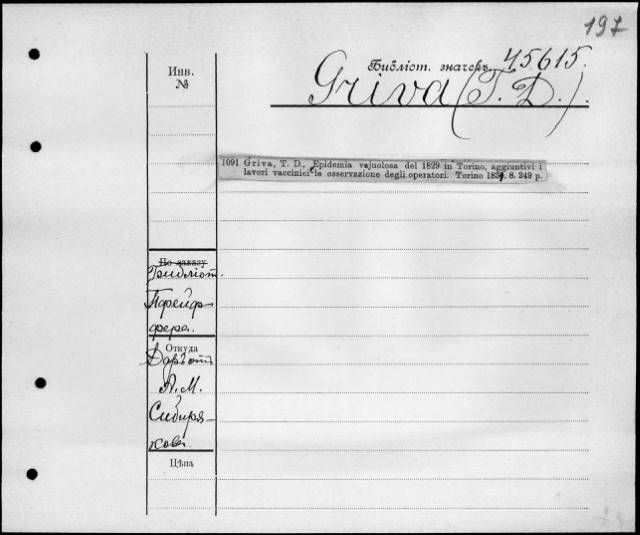 197
Инв.
№
Библіот. значекъ 45615.
Griva (T. D.).
1091 Griva, T. D., Epidemia vajuolosa del 1829 in Torino, aggiuntivi i
lavori vaccinici e le osservazione degli operatori. Torino 1831. 8. 249 p.
По заказу
Библіот.
Пфейф-
фера.
Откуда
Даръ отъ
А. М.
Сибиря-
кова.
Цѣна